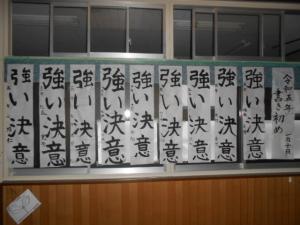 令和五年
書き初め
一月十日
強い決意
強い決意
強い決意
強い決意
強い決意
強い決意
強い決意
強い決意